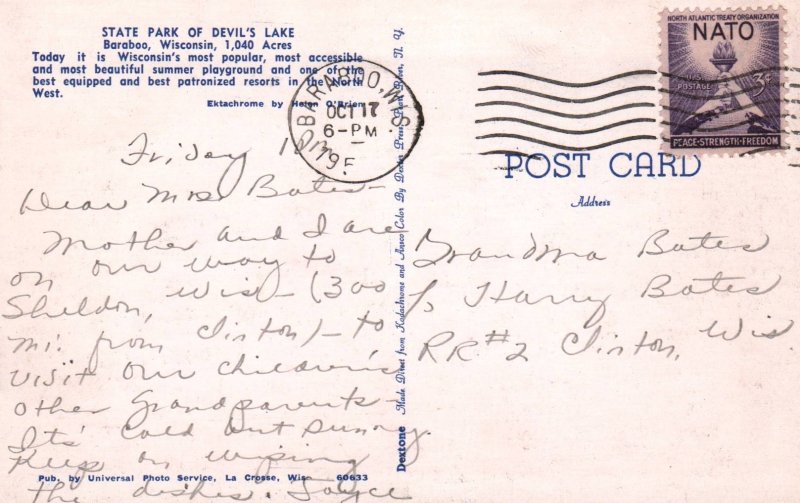 STATE PARK OF DEVIL'S LAKE
Baraboo, Wisconsin, 1,040 Acres
Today it is Wisconsin's most popular, most accessible
and most beautiful summer playground and one of the
best equipped and best patronized resorts in the North
West.
Ektachrome by Helen O'Brien
BARABOO, WIS.
OCT 17
6-PM
195
NORTH ATLANTIC TREATY ORGANIZATION
NATO
U.S. POSTAGE 3¢
PEACE-STRENGTH-FREEDOM
POST CARD
Address
Friday
Dear Mrs Bates-
Mother and I are
on our way to
Sheldon, Wis- (300
mi. from Clinton)- to
visit our children's
other Grandparents-
Its' cold but sunny.
Keep on wiping
the dishes. Joyce
Grandma Bates
℅ Harry Bates
RR #2 Clinton, Wis
Dextone Made Direct from Kodachrome and Ansco Color By Dexter Press, Pearl River, N. Y.
Pub. by Universal Photo Service, La Crosse, Wis. 60633